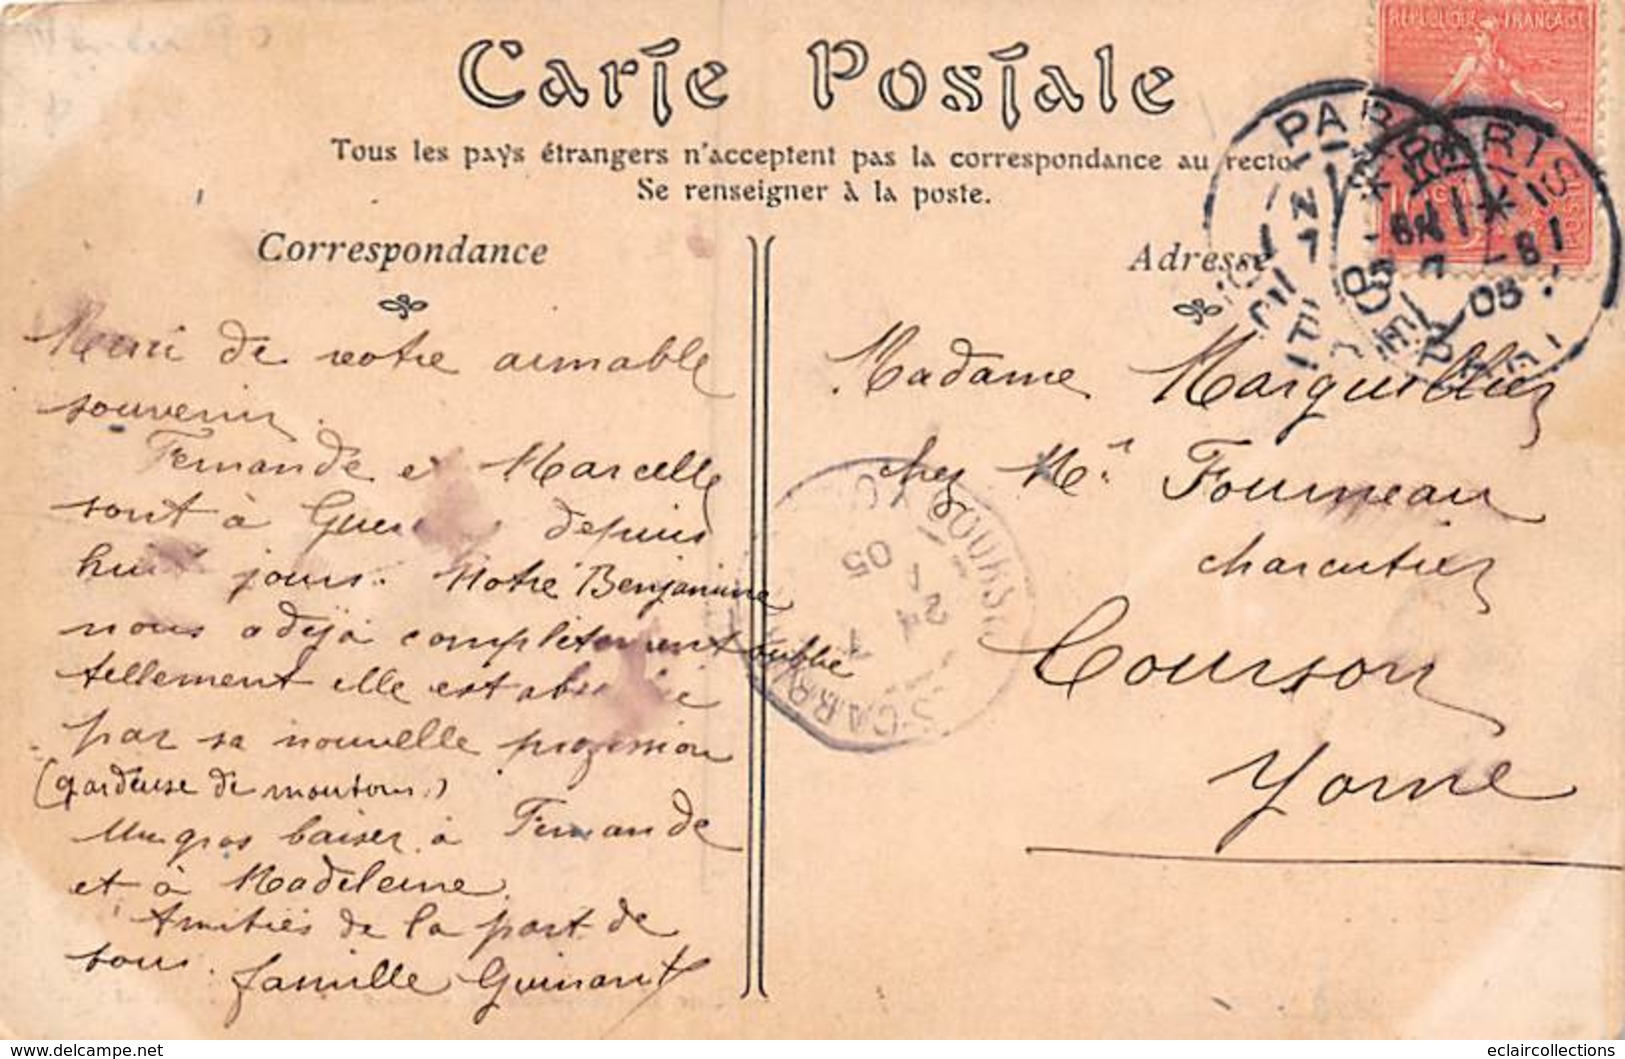 Carte Postale
Tous les pays étrangers n'acceptent pas la correspondance au recto
Se renseigner à la poste.
Correspondance
Merci de votre aimable
souvenir.
Fernande et Marcelle
sont à depuis
huit jours. Notre Benjamine
nous a déjà complètement oublié
tellement elle est absorbée
par sa nouvelle profession
(gardeuse de moutons.)
Un gros baiser à Fernande
et à Madeleine.
Amitiés de la part de
tous. famille Guinant
Adresse
Madame Marguillier
chez Mr. Fourneau
charcutier
Courson
Yonne
REPUBLIQUE FRANÇAISE
PARIS
PARIS
05
05
24
1
05
eclaircollections.fr
eclaircollections